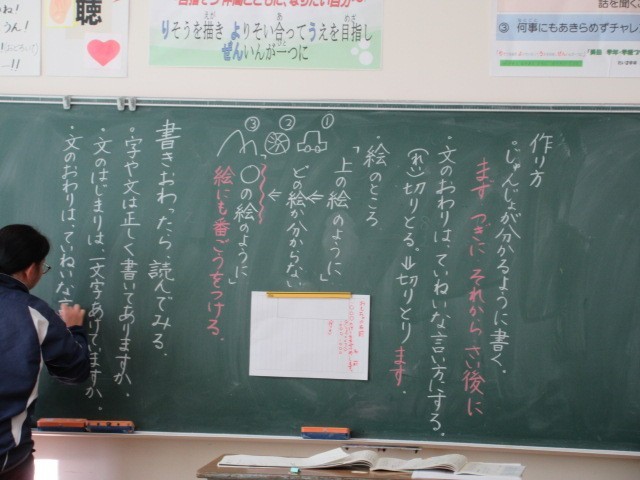 聴
目指し
りそうを描き よりそい合ってうえを目指し
ぜんいんが一つに
話を聞こ
③ 何事にもあきらめずチャレ
作り方
・じゅんじょが分かるように書く。
まず つぎに それから さい後に
・文のおわりは、ていねいな言い方にする。
(れい)切りとる。⇒切りとります。
・絵のところ
「上の絵のように」
どの絵か分からない
「○の絵のように」
① ② ③
絵にも番ごうをつける。
書きおわったら、読んでみる。
・字や文は正しく書いてありますか。
・文のはじまりは、一文字あけてますか。
・文のおわりは、ていねいな言